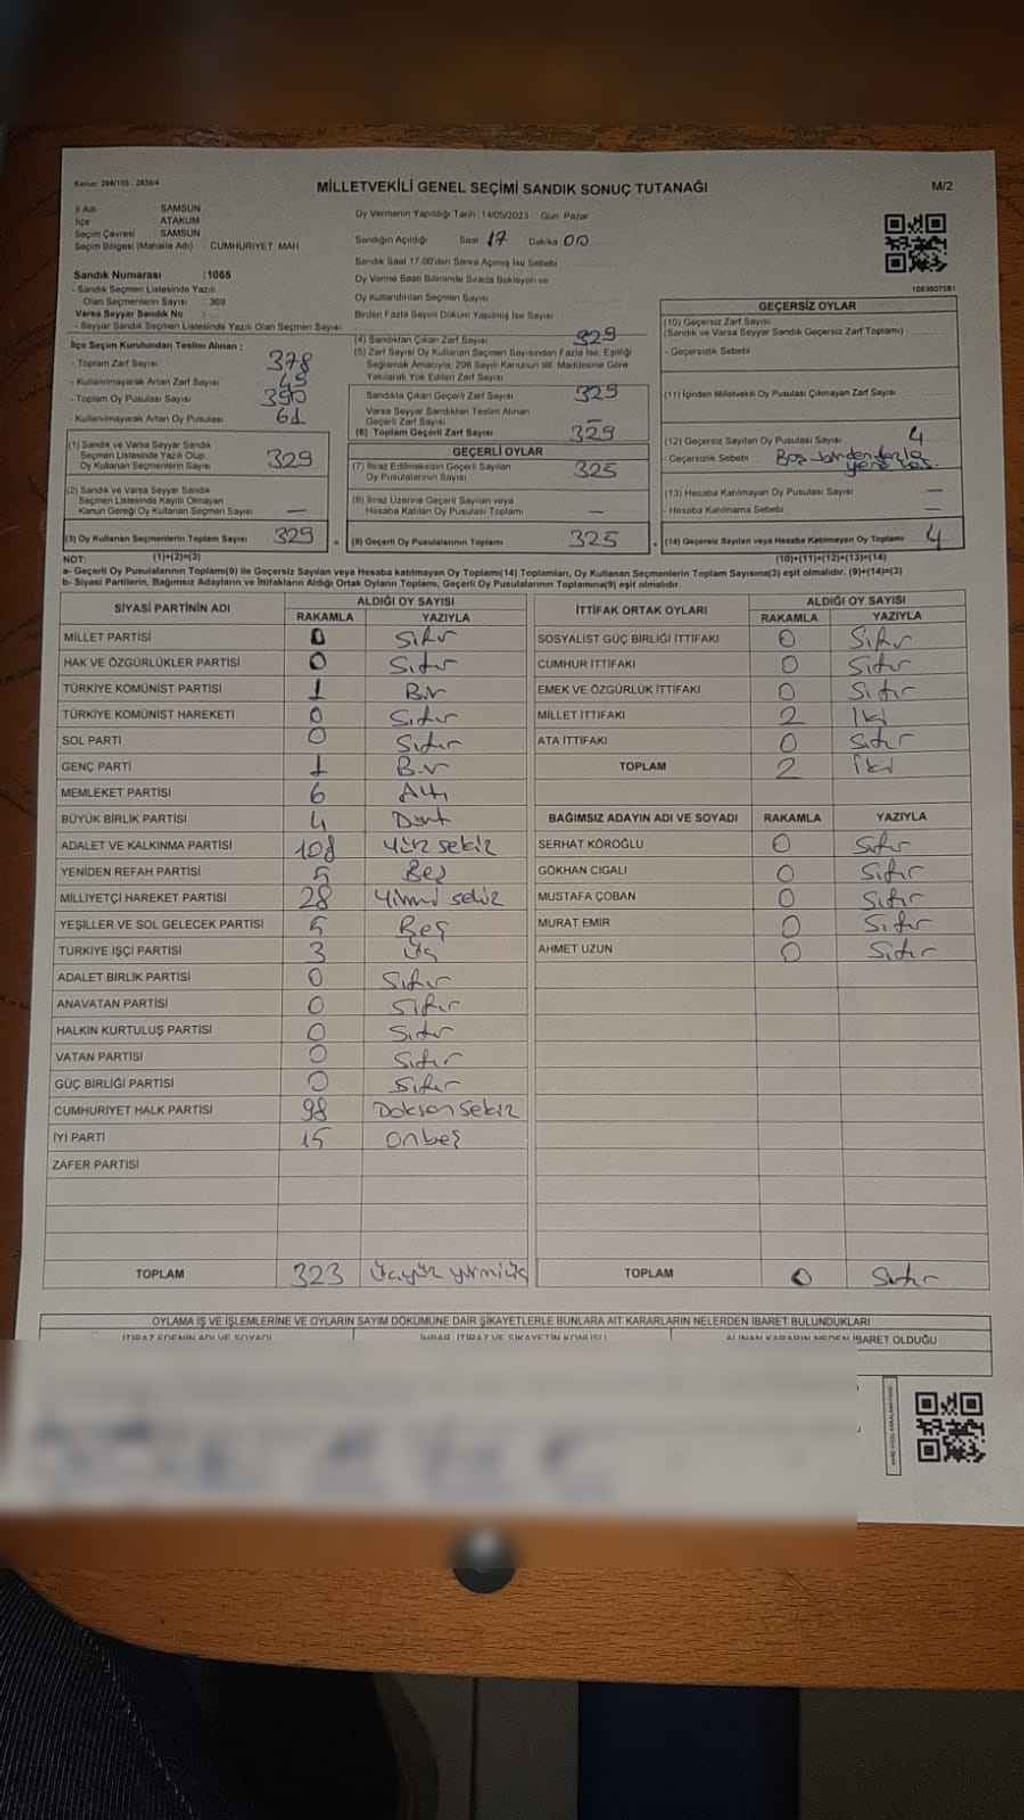 MİLLETVEKİLİ GENEL SEÇİMİ SANDIK SONUÇ TUTANAĞI
M/2
İl Adı SAMSUN
İlçe ATAKUM
Seçim Çevresi SAMSUN
Seçim Bölgesi (Mahalle Adı) : CUMHURİYET MAH
Oy Vermenin Yapıldığı Tarih : 14/05/2023 Gün: Pazar
Sandığın Açıldığı Saat 17 Dakika 00
Sandık Saat 17.00'den Sonra Açılmış İse Sebebi
Oy Verme Saati Bitiminde Sırada Bekleyen ve
Oy Kullandırılan Seçmen Sayısı
Birden Fazla Sayım Döküm Yapılmış İse Sayısı
Sandık Numarası : 1065
- Sandık Seçmen Listesinde Yazılı
Olan Seçmenlerin Sayısı : 369
Varsa Seyyar Sandık No
- Seyyar Sandık Seçmen Listesinde Yazılı Olan Seçmen Sayısı
İlçe Seçim Kurulundan Teslim Alınan :
- Toplam Zarf Sayısı 378
- Kullanılmayarak Artan Zarf Sayısı 49
- Toplam Oy Pusulası Sayısı 390
- Kullanılmayarak Artan Oy Pusulası 61
(1) Sandık ve Varsa Seyyar Sandık
Seçmen Listesinde Yazılı Olup
Oy Kullanan Seçmenlerin Sayısı 329
(2) Sandık ve Varsa Seyyar Sandık
Seçmen Listesinde Kayıtlı Olmayan
Kanun Gereği Oy Kullanan Seçmen Sayısı —
(3) Oy Kullanan Seçmenlerin Toplam Sayısı 329
(1)+(2)=(3)
(4) Sandıktan Çıkan Zarf Sayısı 329
(5) Zarf Sayısı Oy Kullanan Seçmen Sayısından Fazla İse, Eşitliği
Sağlamak Amacıyla, 298 Sayılı Kanunun 98. Maddesine Göre
Yakılarak Yok Edilen Zarf Sayısı —
Sandıkta Çıkan Geçerli Zarf Sayısı 329
Varsa Seyyar Sandıktan Teslim Alınan
Geçerli Zarf Sayısı —
(6) Toplam Geçerli Zarf Sayısı 329
GEÇERLİ OYLAR
(7) İtiraz Edilmeksizin Geçerli Sayılan
Oy Pusulalarının Sayısı 325
(8) İtiraz Üzerine Geçerli Sayılan veya
Hesaba Katılan Oy Pusulası Toplamı —
(9) Geçerli Oy Pusulalarının Toplamı 325
GEÇERSİZ OYLAR
(10) Geçersiz Zarf Sayısı
(Sandık ve Varsa Seyyar Sandık Geçersiz Zarf Toplamı)
- Geçersizlik Sebebi
(11) İçinden Milletvekili Oy Pusulası Çıkmayan Zarf Sayısı
(12) Geçersiz Sayılan Oy Pusulası Sayısı 4
- Geçersizlik Sebebi Boş, birden fazla
(13) Hesaba Katılmayan Oy Pusulası Sayısı —
- Hesaba Katılmama Sebebi —
(14) Geçersiz Sayılan veya Hesaba Katılmayan Oy Toplamı 4
(10)+(11)+(12)+(13)=(14)
NOT:
a- Geçerli Oy Pusulalarının Toplamı(9) ile Geçersiz Sayılan veya Hesaba katılmayan Oy Toplamı(14) Toplamları, Oy Kullanan Seçmenlerin Toplam Sayısına(3) eşit olmalıdır. (9)+(14)=(3)
b- Siyasi Partilerin, Bağımsız Adayların ve İttifakların Aldığı Ortak Oyların Toplamı, Geçerli Oy Pusulalarının Toplamına(9) eşit olmalıdır.
SİYASİ PARTİNİN ADI
ALDIĞI OY SAYISI
RAKAMLA YAZIYLA
MİLLET PARTİSİ 0 Sıfır
HAK VE ÖZGÜRLÜKLER PARTİSİ 0 Sıfır
TÜRKİYE KOMÜNİST PARTİSİ 1 Bir
TÜRKİYE KOMÜNİST HAREKETİ 0 Sıfır
SOL PARTİ 0 Sıfır
GENÇ PARTİ 1 Bir
MEMLEKET PARTİSİ 6 Altı
BÜYÜK BİRLİK PARTİSİ 4 Dört
ADALET VE KALKINMA PARTİSİ 108 Yüz sekiz
YENİDEN REFAH PARTİSİ 5 Beş
MİLLİYETÇİ HAREKET PARTİSİ 28 Yirmi sekiz
YEŞİLLER VE SOL GELECEK PARTİSİ 5 Beş
TÜRKİYE İŞÇİ PARTİSİ 3 Üç
ADALET BİRLİK PARTİSİ 0 Sıfır
ANAVATAN PARTİSİ 0 Sıfır
HALKIN KURTULUŞ PARTİSİ 0 Sıfır
VATAN PARTİSİ 0 Sıfır
GÜÇ BİRLİĞİ PARTİSİ 0 Sıfır
CUMHURİYET HALK PARTİSİ 98 Doksan Sekiz
İYİ PARTİ 15 onbeş
ZAFER PARTİSİ
TOPLAM 323 Üçyüz yirmiüç
İTTİFAK ORTAK OYLARI
ALDIĞI OY SAYISI
RAKAMLA YAZIYLA
SOSYALİST GÜÇ BİRLİĞİ İTTİFAKI 0 Sıfır
CUMHUR İTTİFAKI 0 Sıfır
EMEK VE ÖZGÜRLÜK İTTİFAKI 0 Sıfır
MİLLET İTTİFAKI 2 İki
ATA İTTİFAKI 0 Sıfır
TOPLAM 2 İki
BAĞIMSIZ ADAYIN ADI VE SOYADI RAKAMLA YAZIYLA
SERHAT KÖROĞLU 0 Sıfır
GÖKHAN CIGALI 0 Sıfır
MUSTAFA ÇOBAN 0 Sıfır
MURAT EMİR 0 Sıfır
AHMET UZUN 0 Sıfır
TOPLAM 0 Sıfır
OYLAMA İŞ VE İŞLEMLERİNE VE OYLARIN SAYIM DÖKÜMÜNE DAİR ŞİKAYETLERLE BUNLARA AİT KARARLARIN NELERDEN İBARET BULUNDUKLARI
İTİRAZ EDENİN ADI VE SOYADI İHBAR, İTİRAZ VE ŞİKAYETİN KONUSU ALINAN KARARIN NEDEN İBARET OLDUĞU